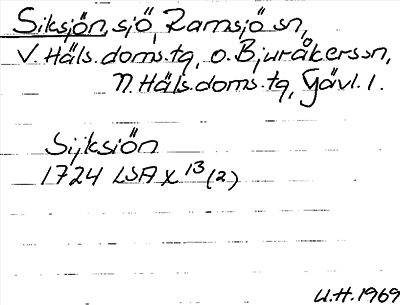 Siksjön, sjö, Ramsjö sn,
V. Häls. doms. tg, o. Bjuråkers sn,
N. Häls. doms. tg, Gävl. l.
Sijksiön
1724 LSA X 13 (2)
U.H. 1969